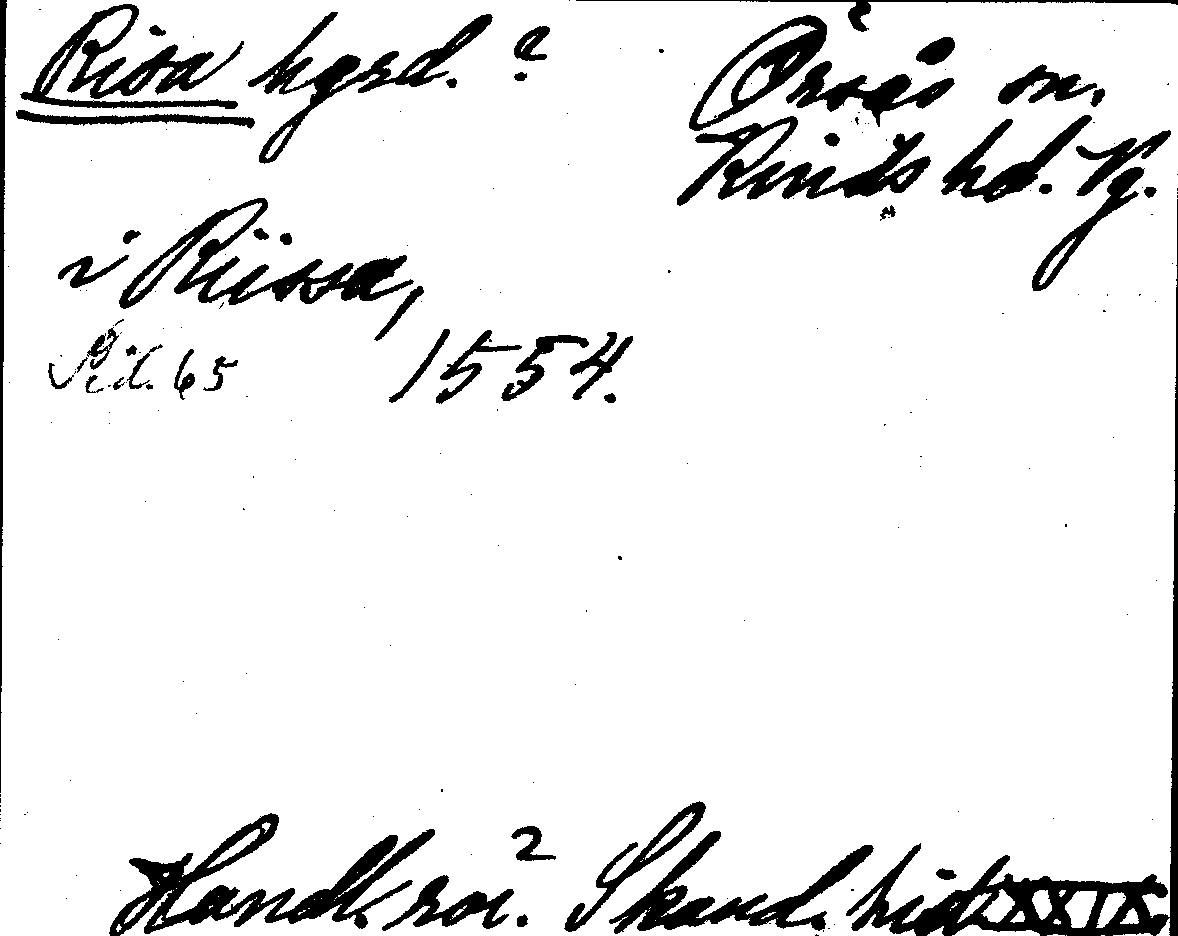 Risa hgrd. ?
Örsås sn.
Kinds hd. Vg.
i Riissa,
Sid. 65 1554.
Handl. rör. Skand. hist. XXIX.